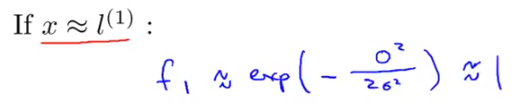 If x ≈ l⁽¹⁾ :
f₁ ≈ exp(− 0²/2σ²) ≈ 1